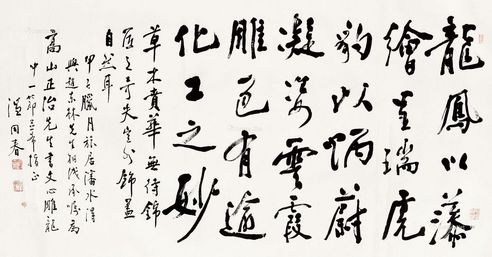 龍鳳以藻
繪呈瑞虎
豹以炳蔚
凝姿雲霞
雕色有逾
化工之妙
草木賁華無待錦
匠之奇夫豈外飾蓋
自然耳
甲子臘月旅居瀋水得
與趙東林先生相識承囑為
高山正治先生書文心雕龍
中一節並希指正
同春